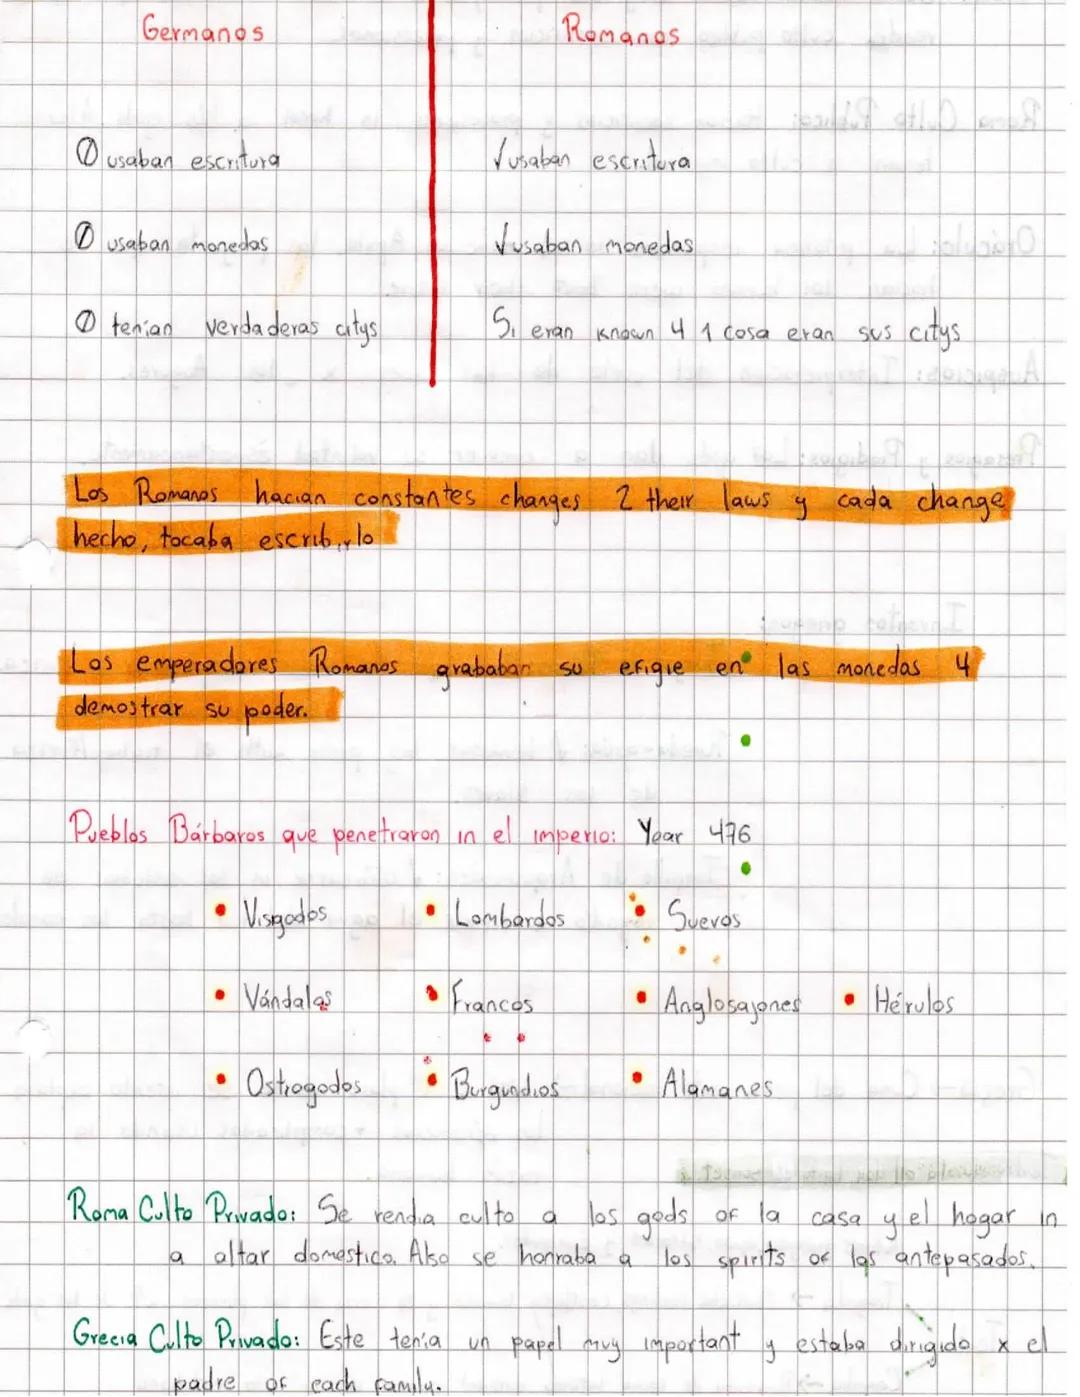 Germanos Romanos
∅ usaban escritura √ usaban escritura
∅ usaban monedas √ usaban monedas
∅ tenían verdaderas citys Si eran known 4 1 cosa eran sus citys
Los Romanos hacian constantes changes 2 their laws y cada change
hecho, tocaba escribirlo
Los emperadores Romanos grababan su efigie en las monedas 4
demostrar su poder.
Pueblos Bárbaros que penetraron in el imperio: Year 476
• Visgodos • Lombardos • Suevos
• Vándalas • Francos • Anglosajones • Hérulos
• Ostrogodos • Burgundios • Alamanes
Roma Culto Privado: Se rendia culto a los gods of la casa y el hogar in
a altar domestico. Also se honraba a los spirits of las antepasados.
Grecia Culto Privado: Este tenía un papel muy important y estaba dirigido x el
padre of each family.